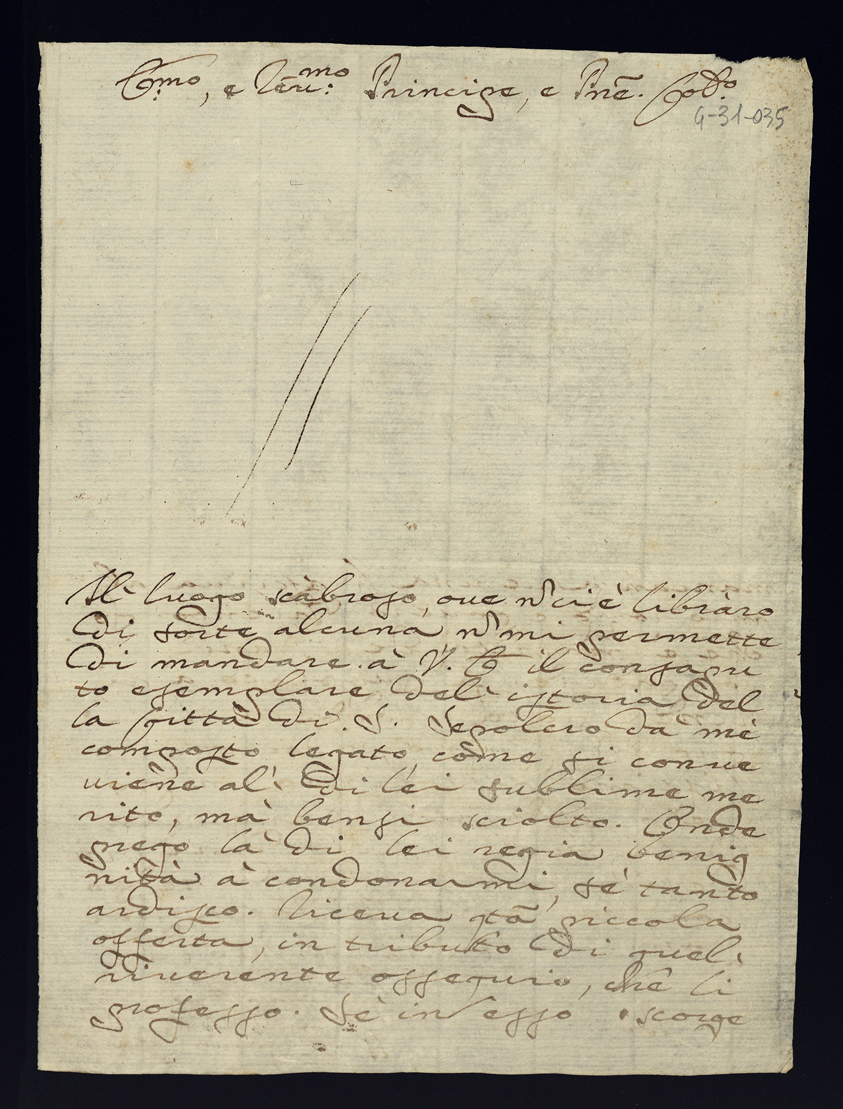 E.mo, e Reu.mo Principe, e Prne. Col.o
G-31-035
Il luogo scabroso, oue n ci è libraro
di sorte alcuna n mi permette
di mandare à V. E il consapu
to esemplare del' istoria del
la Città di S. Sepolcro da mè
composto legato, come si conue
uiene al' di lei sublime me
rito, mà bensi sciolto. Onde
prego la di lei regia benig
nità à condonarmi, sé tanto
ardisco. Riceua qta piccola
offerta, in tributo di quel'
riuerente ossequio, che li
professo. Sé in esso scorge